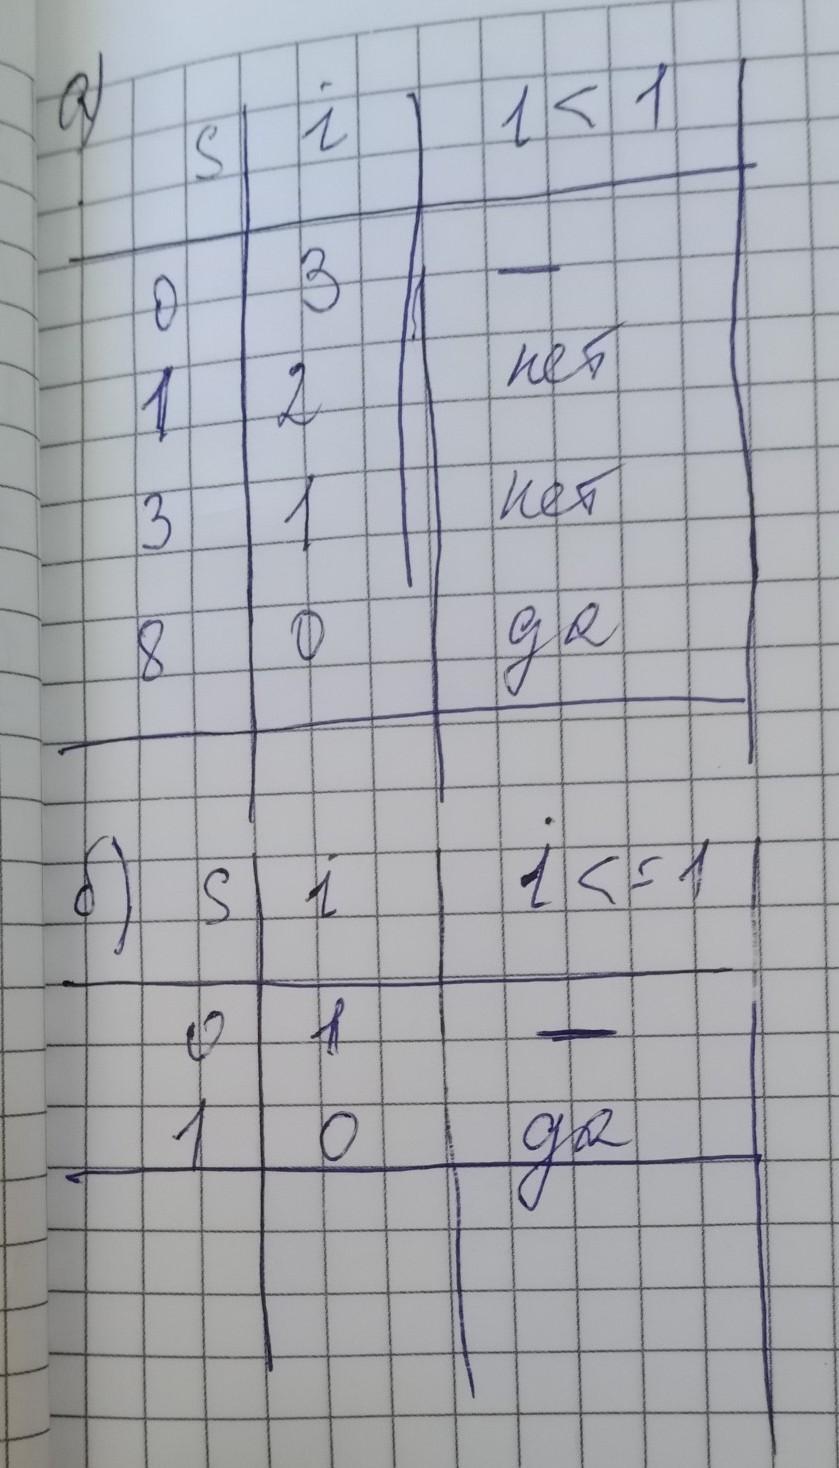 а) s i i < 1
0 3 —
1 2 нет
3 1 нет
8 0 да
б) s i i <= 1
0 1 —
1 0 да